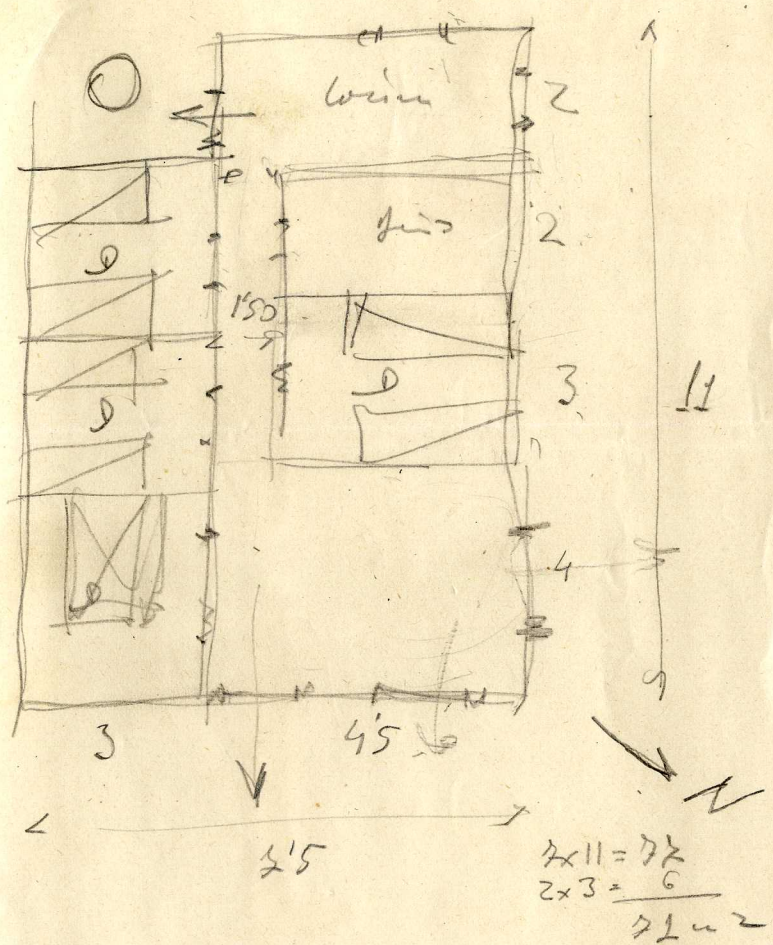 Cocina
2
Baño
2
D
1'50
3
11
D
D
4
D
3
4'5
N
7'5
7x11=77
2x3= 6
71 m2